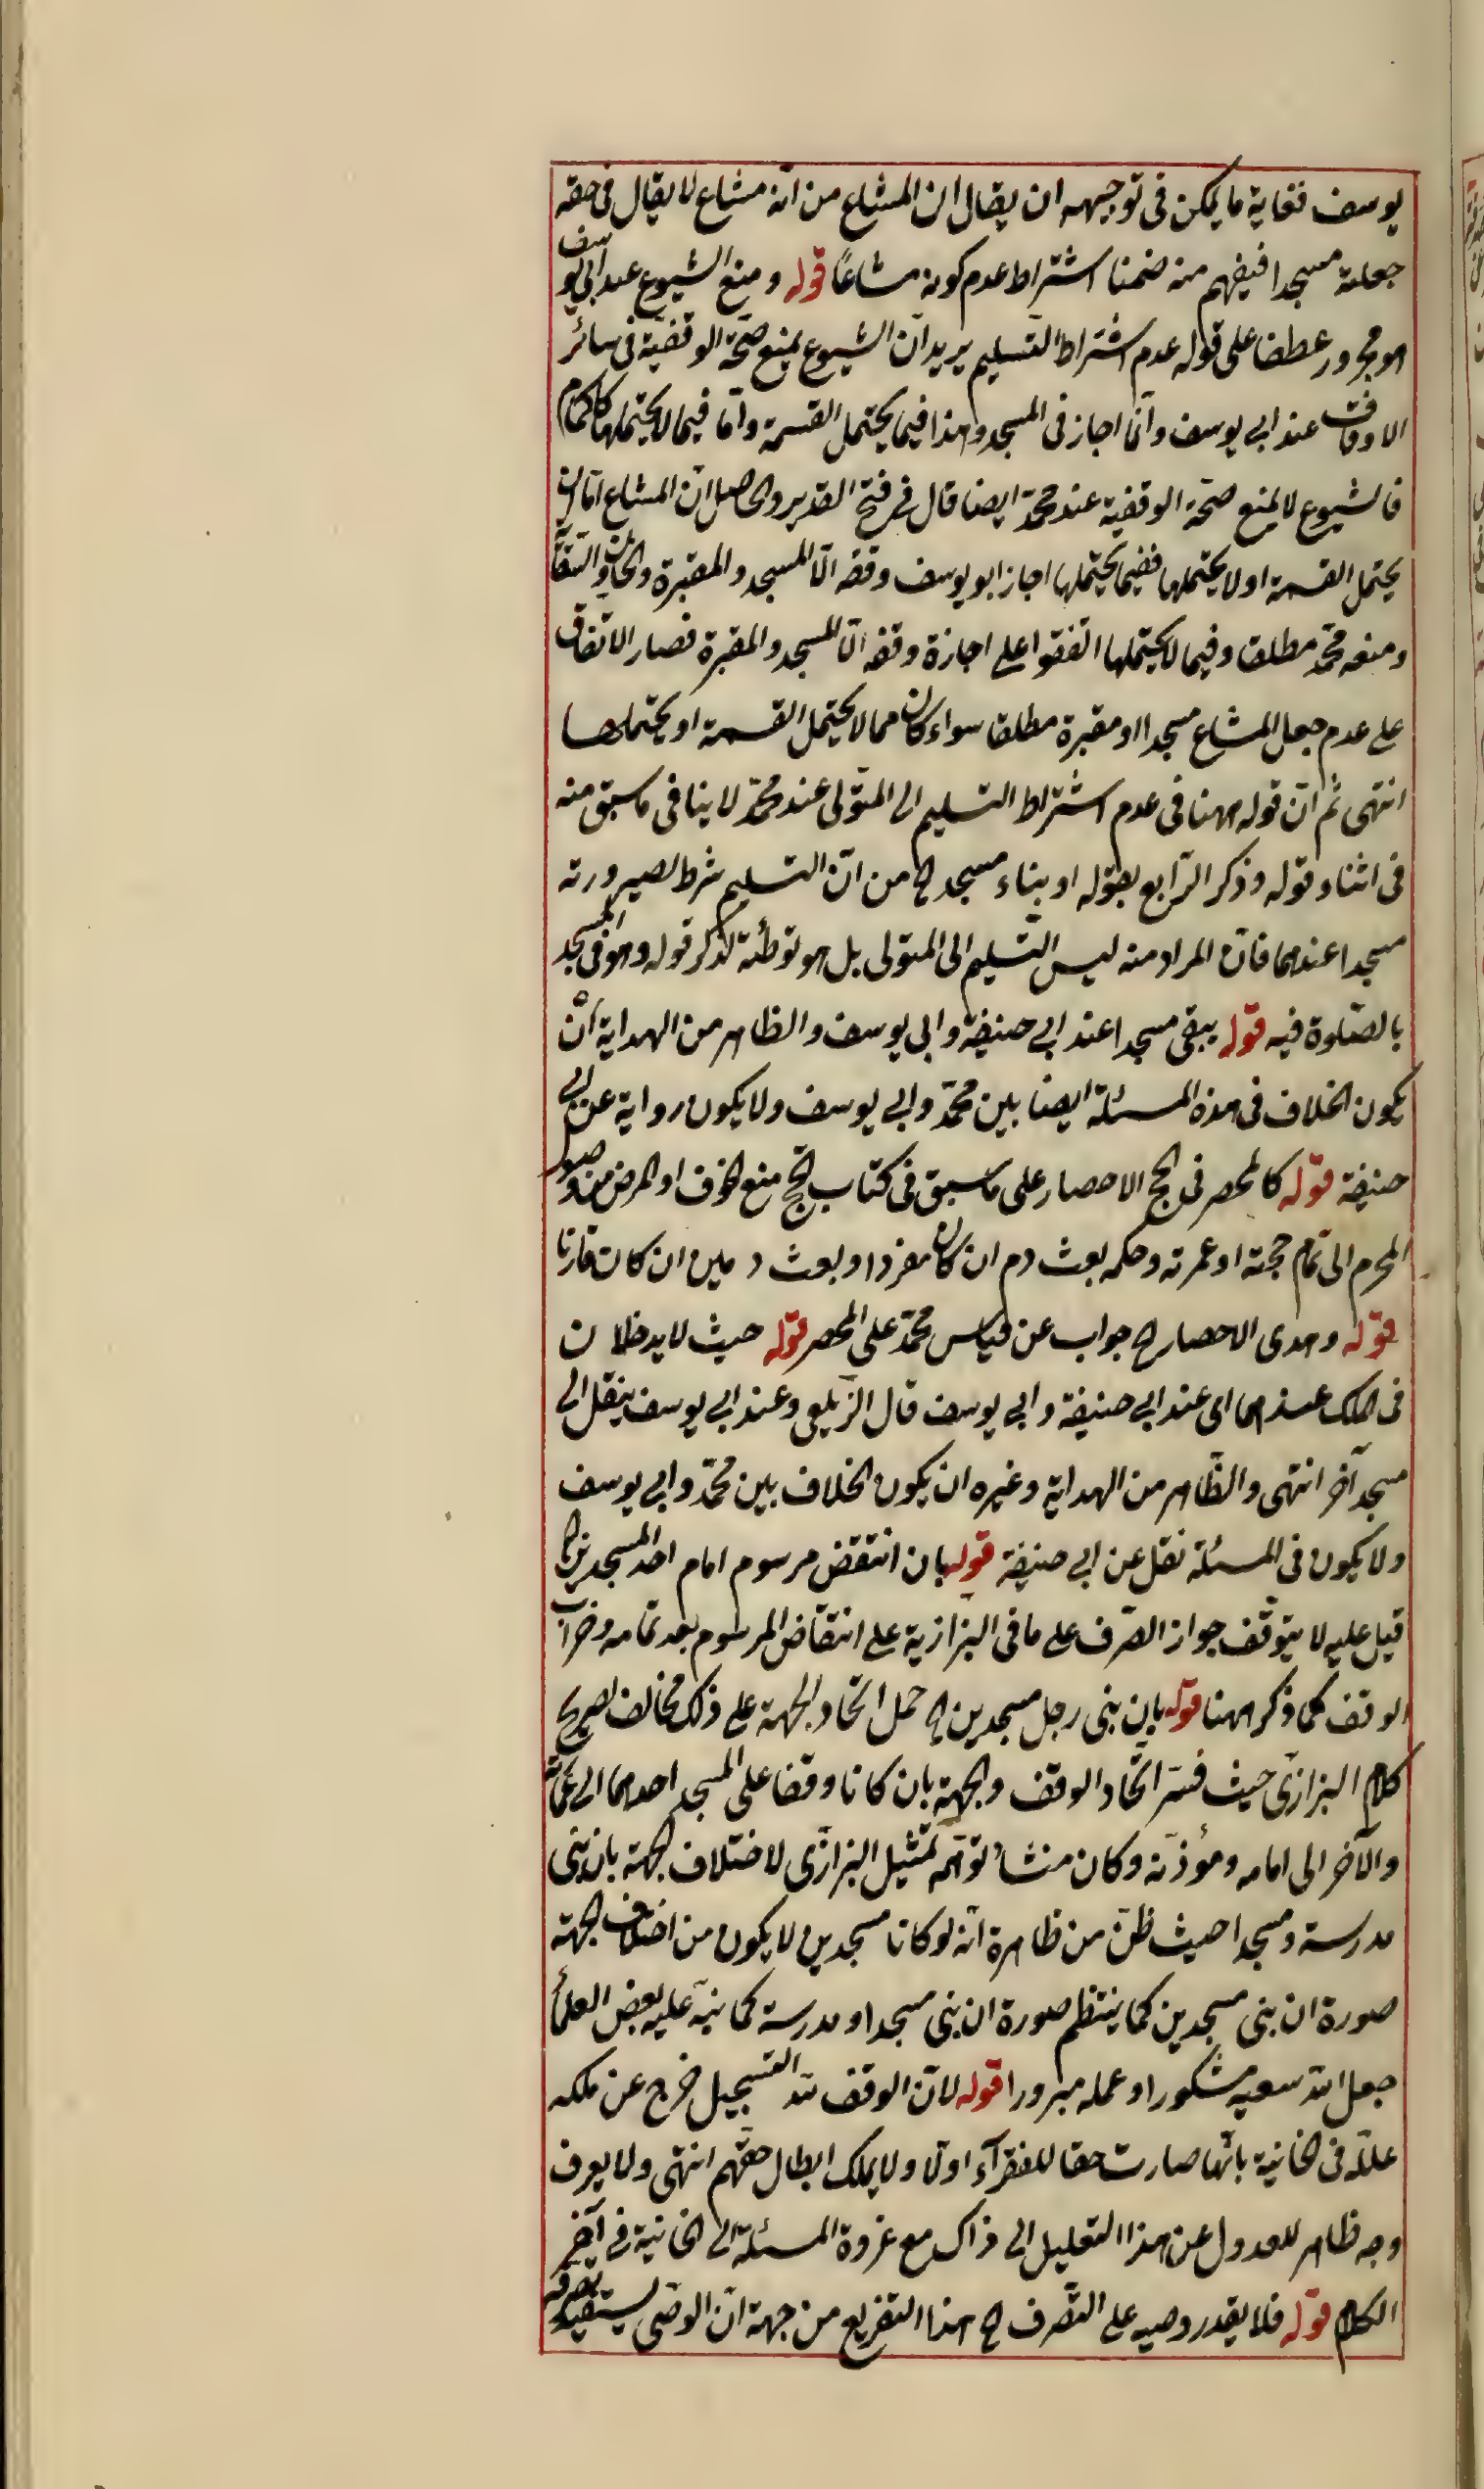 يوسف فغاية ما يمكن فى توجيهه ان يقال ان المشاع من انه مشاع لا يقال فى حقه
جعلته مسجدا فيفهم منه ضمنا اشتراط عدم كونه مشاعا قوله ومنع الشيوع عند ابى يوسف
هو مجرور عطف على قوله عدم اشتراط التسليم يريد ان الشيوع يمنع صحة الوقفية فى سائر
الاوقاف عند ابى يوسف وانما اجاز فى المسجد وهذا فيما يحتمل القسمة واما فيما لا يحتملها كالحمام
فالشيوع لا يمنع صحة الوقفية عند محمد ايضا قال فى فتح القدير والحاصل ان المشاع اما ان
يحتمل القسمة او لا يحتملها ففيما يحتملها اجاز ابو يوسف وقفه الا المسجد والمقبرة والخان والسقاية
ومنعه محمد مطلقا وفيما لا يحتملها اتفقوا على اجازة وقفه الا المسجد والمقبرة فصار الاتفاق
على عدم جعل المشاع مسجدا او مقبرة مطلقا سواء كان مما لا يحتمل القسمة او يحتملها
انتهى ثم ان قوله ههنا فى عدم اشتراط التسليم الى المتولى عند محمد لا ينافى ما سبق منه
فى اثناء قوله وذكر الرابع بقوله او بناء مسجد الخ من ان التسليم شرط لصيرورته
مسجدا عندهما فان المراد منه ليس التسليم الى المتولى بل هو توطئة لذكر قوله وهو فى المسجد
بالصلوة فيه قوله يبقى مسجدا عند ابى حنيفة وابى يوسف والظاهر من الهداية ان
يكون الخلاف فى هذه المسئلة ايضا بين محمد وابى يوسف ولا يكون رواية عن ابى
حنيفة قوله كالمحصر فى الحج الاحصار على ما سبق فى كتاب الحج منع الخوف او المرض من وصول
المحرم الى تمام حجته او عمرته وحكمه بعث دم ان كان مفردا وبعث دمين ان كان قارنا
قوله وهدى الاحصار الخ جواب عن قياس محمد على المحصر قوله حيث لا يدخلان
فى الملك عندهما اى عند ابى حنيفة وابى يوسف قال الزيلعى وعند ابى يوسف ينقل الى
مسجد آخر انتهى والظاهر من الهداية وغيره ان يكون الخلاف بين محمد وابى يوسف
ولا يكون فى المسئلة نقل عن ابى حنيفة قوله بان انتقض مرسوم امام احد المسجدين الخ
قيل عليه لا يتوقف جواز الصرف على ما فى البزازية على انتقاض المرسوم بعد تمامه وخراب
الوقف كما ذكر ههنا قوله بان بنى رجل مسجدين الخ حمل اتحاد الجهة على ذلك مخالف لصريح
كلام البزازى حيث فسر اتحاد الوقف والجهة بان كانا وقفا على المسجد احدهما الى عمارته
والآخر الى امامه ومؤذنه وكان منشأ توهمه تمثيل البزازى لاختلاف الجهة بان بنى
مدرسة ومسجدا حيث ظن من ظاهره انه لو كانا مسجدين لا يكون من اختلاف الجهة
صورة ان بنى مسجدين كما ينتظم صورة ان بنى مسجدا ومدرسة كما نبه عليه بعض العلماء
جعل الله سعيه مشكورا وعمله مبرورا قوله لان الوقف بعد التسجيل خرج عن ملكه
علله فى الخانية بانها صارت حقا للفقرآء اولا ولا يملك ابطال حقهم انتهى ولا يعرف
وجه ظاهر للعدول عن هذا التعليل الى ذاك مع عزوة المسئلة الى الخانية فى آخر
الكلام قوله فلا يقدر وصيه على التصرف الخ هذا التفريع من جهة ان الوصى يستفيد تصرفه